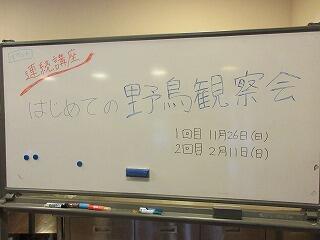 連続講座
はじめての野鳥観察会
1回目 11月26日(日)
2回目 2月11日(日)